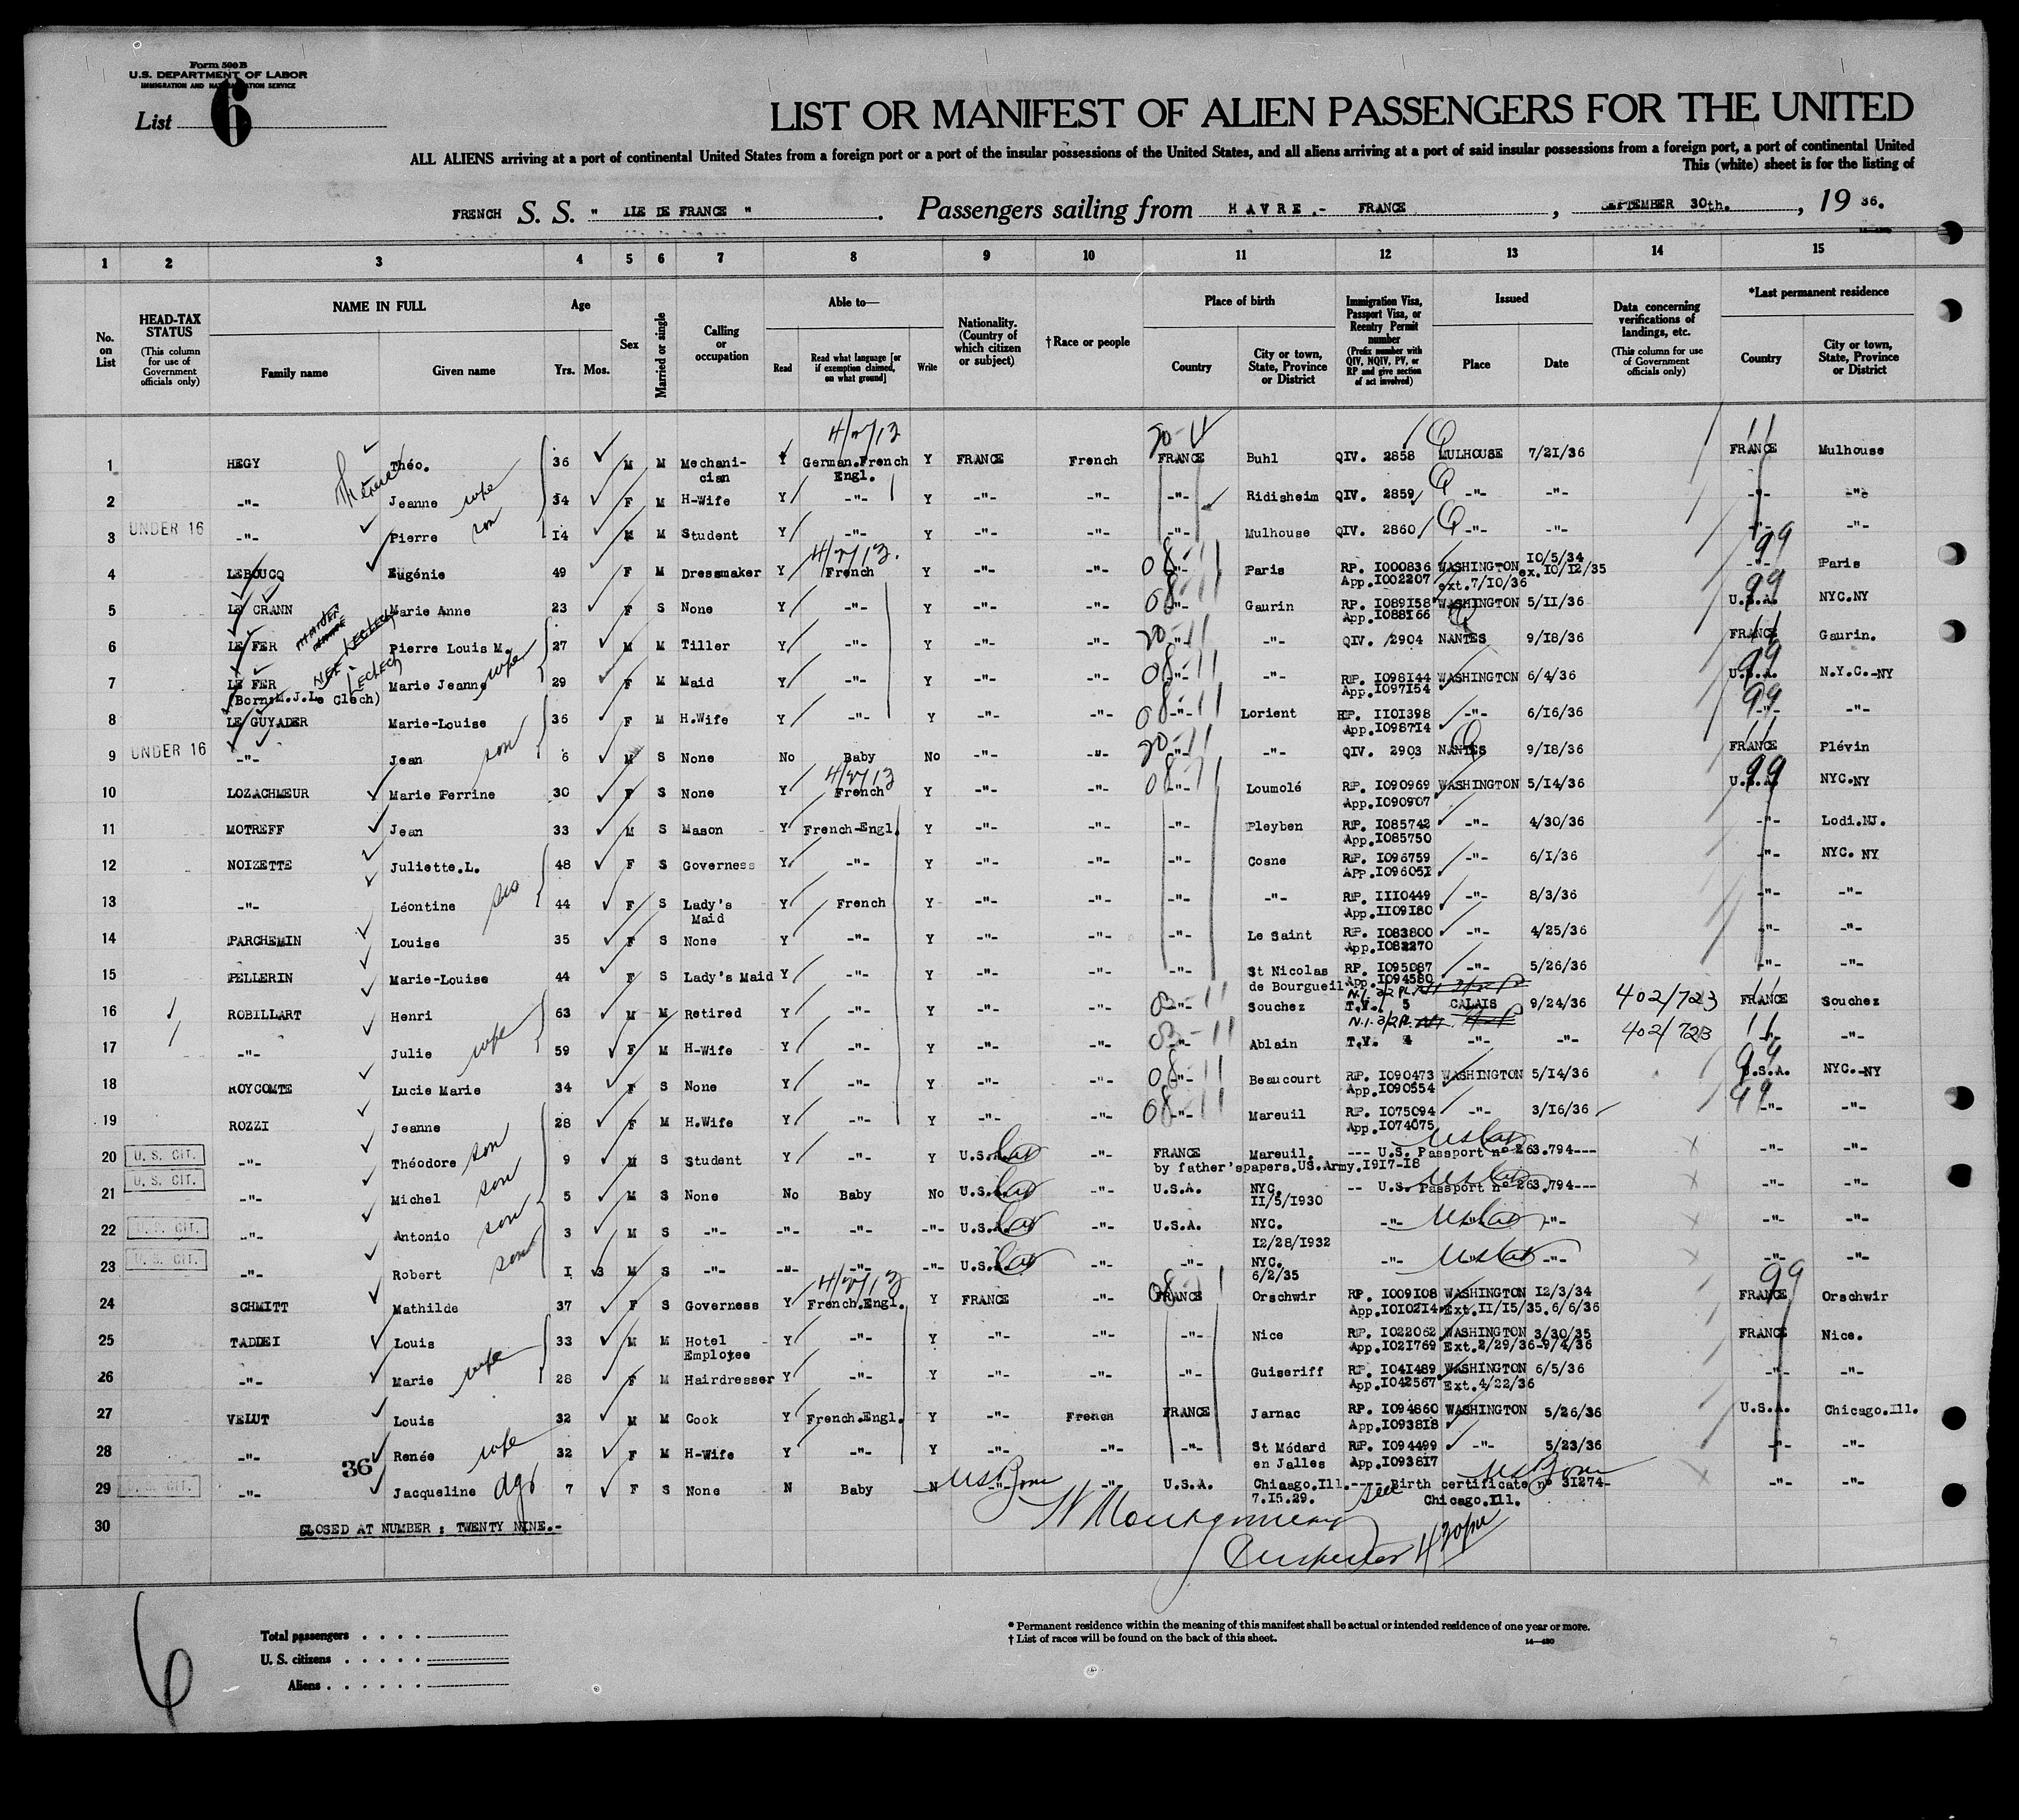 Form 500B
U.S. DEPARTMENT OF LABOR
IMMIGRATION AND NATURALIZATION SERVICE
List 6
LIST OR MANIFEST OF ALIEN PASSENGERS FOR THE UNITED
ALL ALIENS arriving at a port of continental United States from a foreign port or a port of the insular possessions of the United States, and all aliens arriving at a port of said insular possessions from a foreign port, a port of continental United
This (white) sheet is for the listing of
FRENCH S. S. " ILE DE FRANCE ". Passengers sailing from HAVRE.- FRANCE, SEPTEMBER 30th., 19 36.
1 2 3 4 5 6 7 8 9 10 11 12 13 14 15
No. on List
HEAD-TAX STATUS
(This column for use of Government officials only)
NAME IN FULL
Family name
Given name
Age
Yrs. Mos.
Sex
Married or single
Calling or occupation
Able to—
Read
Read what language [or if exemption claimed, on what ground]
Write
Nationality. (Country of which citizen or subject)
†Race or people
Place of birth
Country
City or town, State, Province or District
Immigration Visa, Passport Visa, or Reentry Permit number
(Prefix number with QIV, NQIV, PV, or RP and give section of act involved)
Issued
Place
Date
Data concerning verifications of landings, etc.
(This column for use of Government officials only)
*Last permanent residence
Country
City or town, State, Province or District
4/2/13 20-11 11
1 HEGY Théo. 36 M M Mechani-cian Y German.French Engl. Y FRANCE French FRANCE Buhl QIV. 2858 MULHOUSE 7/21/36 FRANCE Mulhouse
2 -"- Jeanne wife 34 F M H-Wife Y -"- Y -"- -"- -"- Ridisheim QIV. 2859 -"- -"- -"- -"-
3 UNDER 16 -"- Pierre son 14 M M Student Y -"- Y -"- -"- -"- Mulhouse QIV. 2860 -"- -"- -"- -"-
4/2/13. 08-11 99
4 LEBOUCQ Eugénie 49 F M Dressmaker Y French Y -"- -"- -"- Paris RP. I000836 App.I002207 WASHINGTON ext.7/10/36 10/5/34 ex.10/12/35 -"- Paris
5 LE CRANN Marie Anne 23 F S None Y -"- Y -"- -"- 08-11 -"- Gaurin RP. I089158 App.I088166 WASHINGTON 5/11/36 99 U.S.A. NYC.NY
6 LE FER Pierre Louis M. 27 M M Tiller Y -"- Y -"- -"- 20-11 -"- -"- QIV. 2904 NANTES 9/18/36 11 FRANCE Gaurin.
7 LE FER Marie Jeanne wife 29 F M Maid Y -"- Y -"- -"- 08-11 -"- -"- RP. I098144 App.I097154 WASHINGTON 6/4/36 99 U.S.A. N.Y.C.-NY
(Born M.J.Le Clech) NEE LECLECH
8 LE GUYADER Marie-Louise 36 F M H.Wife Y -"- Y -"- -"- 08-11 -"- Lorient RP. II0I398 App.I098714 -"- 6/16/36 99 -"- -"-
9 UNDER 16 -"- Jean son 6 M S None No Baby No -"- -"- 20-11 -"- -"- QIV. 2903 NANTES 9/18/36 11 FRANCE Plévin
4/2/13
10 LOZACHMEUR Marie Perrine 30 F S None Y French Y -"- -"- 08-11 -"- Loumolé RP. I090969 App.I090907 WASHINGTON 5/14/36 99 U.S.A. NYC.NY
11 MOTREFF Jean 33 M S Mason Y French-Engl. Y -"- -"- -"- Pleyben RP. I085742 App.I085750 -"- 4/30/36 -"- Lodi.NJ.
12 NOIZETTE Juliette.L. 48 F S Governess Y -"- Y -"- -"- -"- Cosne RP. I096759 App.I096052 -"- 6/1/36 -"- NYC. NY
13 -"- Léontine sis 44 F S Lady's Maid Y French Y -"- -"- -"- -"- RP. III0449 App.II09180 -"- 8/3/36 -"- -"-
14 PARCHEMIN Louise 35 F S None Y -"- Y -"- -"- -"- Le Saint RP. I083800 App.I082270 -"- 4/25/36 -"- -"-
15 PELLERIN Marie-Louise 44 F S Lady's Maid Y -"- Y -"- -"- -"- St Nicolas de Bourgueil RP. I095087 App.I094580 -"- 5/26/36 -"- -"-
16 ROBILLART Henri 63 M M Retired Y -"- Y -"- -"- -"- Souchez T.V. 5 CALAIS 9/24/36 402/723 FRANCE Souchez
17 -"- Julie wife 59 F M H-Wife Y -"- Y -"- -"- -"- Ablain T.V. 4 -"- -"- 402/723 -"- -"-
18 ROYCOMTE Lucie Marie 34 F S None Y -"- Y -"- -"- 08-11 -"- Beaucourt RP. I090473 App.I090554 WASHINGTON 5/14/36 99 U.S.A. NYC.-NY
19 ROZZI Jeanne 28 F M H.Wife Y -"- Y -"- -"- 08-11 -"- Mareuil RP. I075094 App.I074075 -"- 3/16/36 99 -"- -"-
20 U. S. CIT. -"- Théodore son 9 M S Student Y -"- Y U.S.A. -"- FRANCE Mareuil. --- U.S. Passport nº 263.794--- -"- -"-
by father'spapers.US.Army.1917-18
21 U. S. CIT. -"- Michel son 5 M S None No Baby No U.S.A. -"- U.S.A. NYC. II/5/1930 -- U.S. Passport nº 263.794--- -"- -"-
22 U. S. CIT. -"- Antonio son 3 M S -"- -"- -"- -"- U.S.A. -"- U.S.A. NYC. 12/28/1932 -"- -"- -"- -"-
23 U. S. CIT. -"- Robert son I 3 M S -"- -"- -"- -"- U.S.A. -"- -"- NYC. 6/2/35 -"- -"- -"- -"-
4/2/13
24 SCHMITT Mathilde 37 F S Governess Y French.Engl. Y FRANCE -"- FRANCE Orschwir RP. I009108 App.I010214 WASHINGTON 12/3/34 Ext.II/15/35.6/6/36 99 FRANCE Orschwir
25 TADDEI Louis 33 M M Hotel Employee Y -"- Y -"- -"- -"- Nice RP. I022062 App.I021769 WASHINGTON 3/30/35 Ext.2/29/36-9/4/36 FRANCE Nice.
26 -"- Marie wife 28 F M Hairdresser Y -"- Y -"- -"- -"- Guiseriff RP. I041489 App.I042567 WASHINGTON 6/5/36 Ext.4/22/36 -"- -"-
27 VELUT Louis 32 M M Cook Y French.Engl. Y -"- French FRANCE Jarnac RP. I094860 App.I093818 WASHINGTON 5/26/36 U.S.A. Chicago.Ill.
28 -"- Renée wife 32 F M H-Wife Y -"- Y -"- -"- -"- St Médard en Jalles RP. I094499 App.I093817 -"- 5/23/36 -"- -"-
36
29 U. S. CIT. -"- Jacqueline dgt 7 F S None N Baby N US Born -"- U.S.A. Chiaago.Ill. 7.15.29. ---- Birth certificate nº 31274- Chicago.Ill. US Born -"- -"-
30 CLOSED AT NUMBER : TWENTY NINE.-
W Montgomery
Inspector 4 30pm
6
Total passengers
U. S. citizens
Aliens
* Permanent residence within the meaning of this manifest shall be actual or intended residence of one year or more.
† List of races will be found on the back of this sheet.
14—480